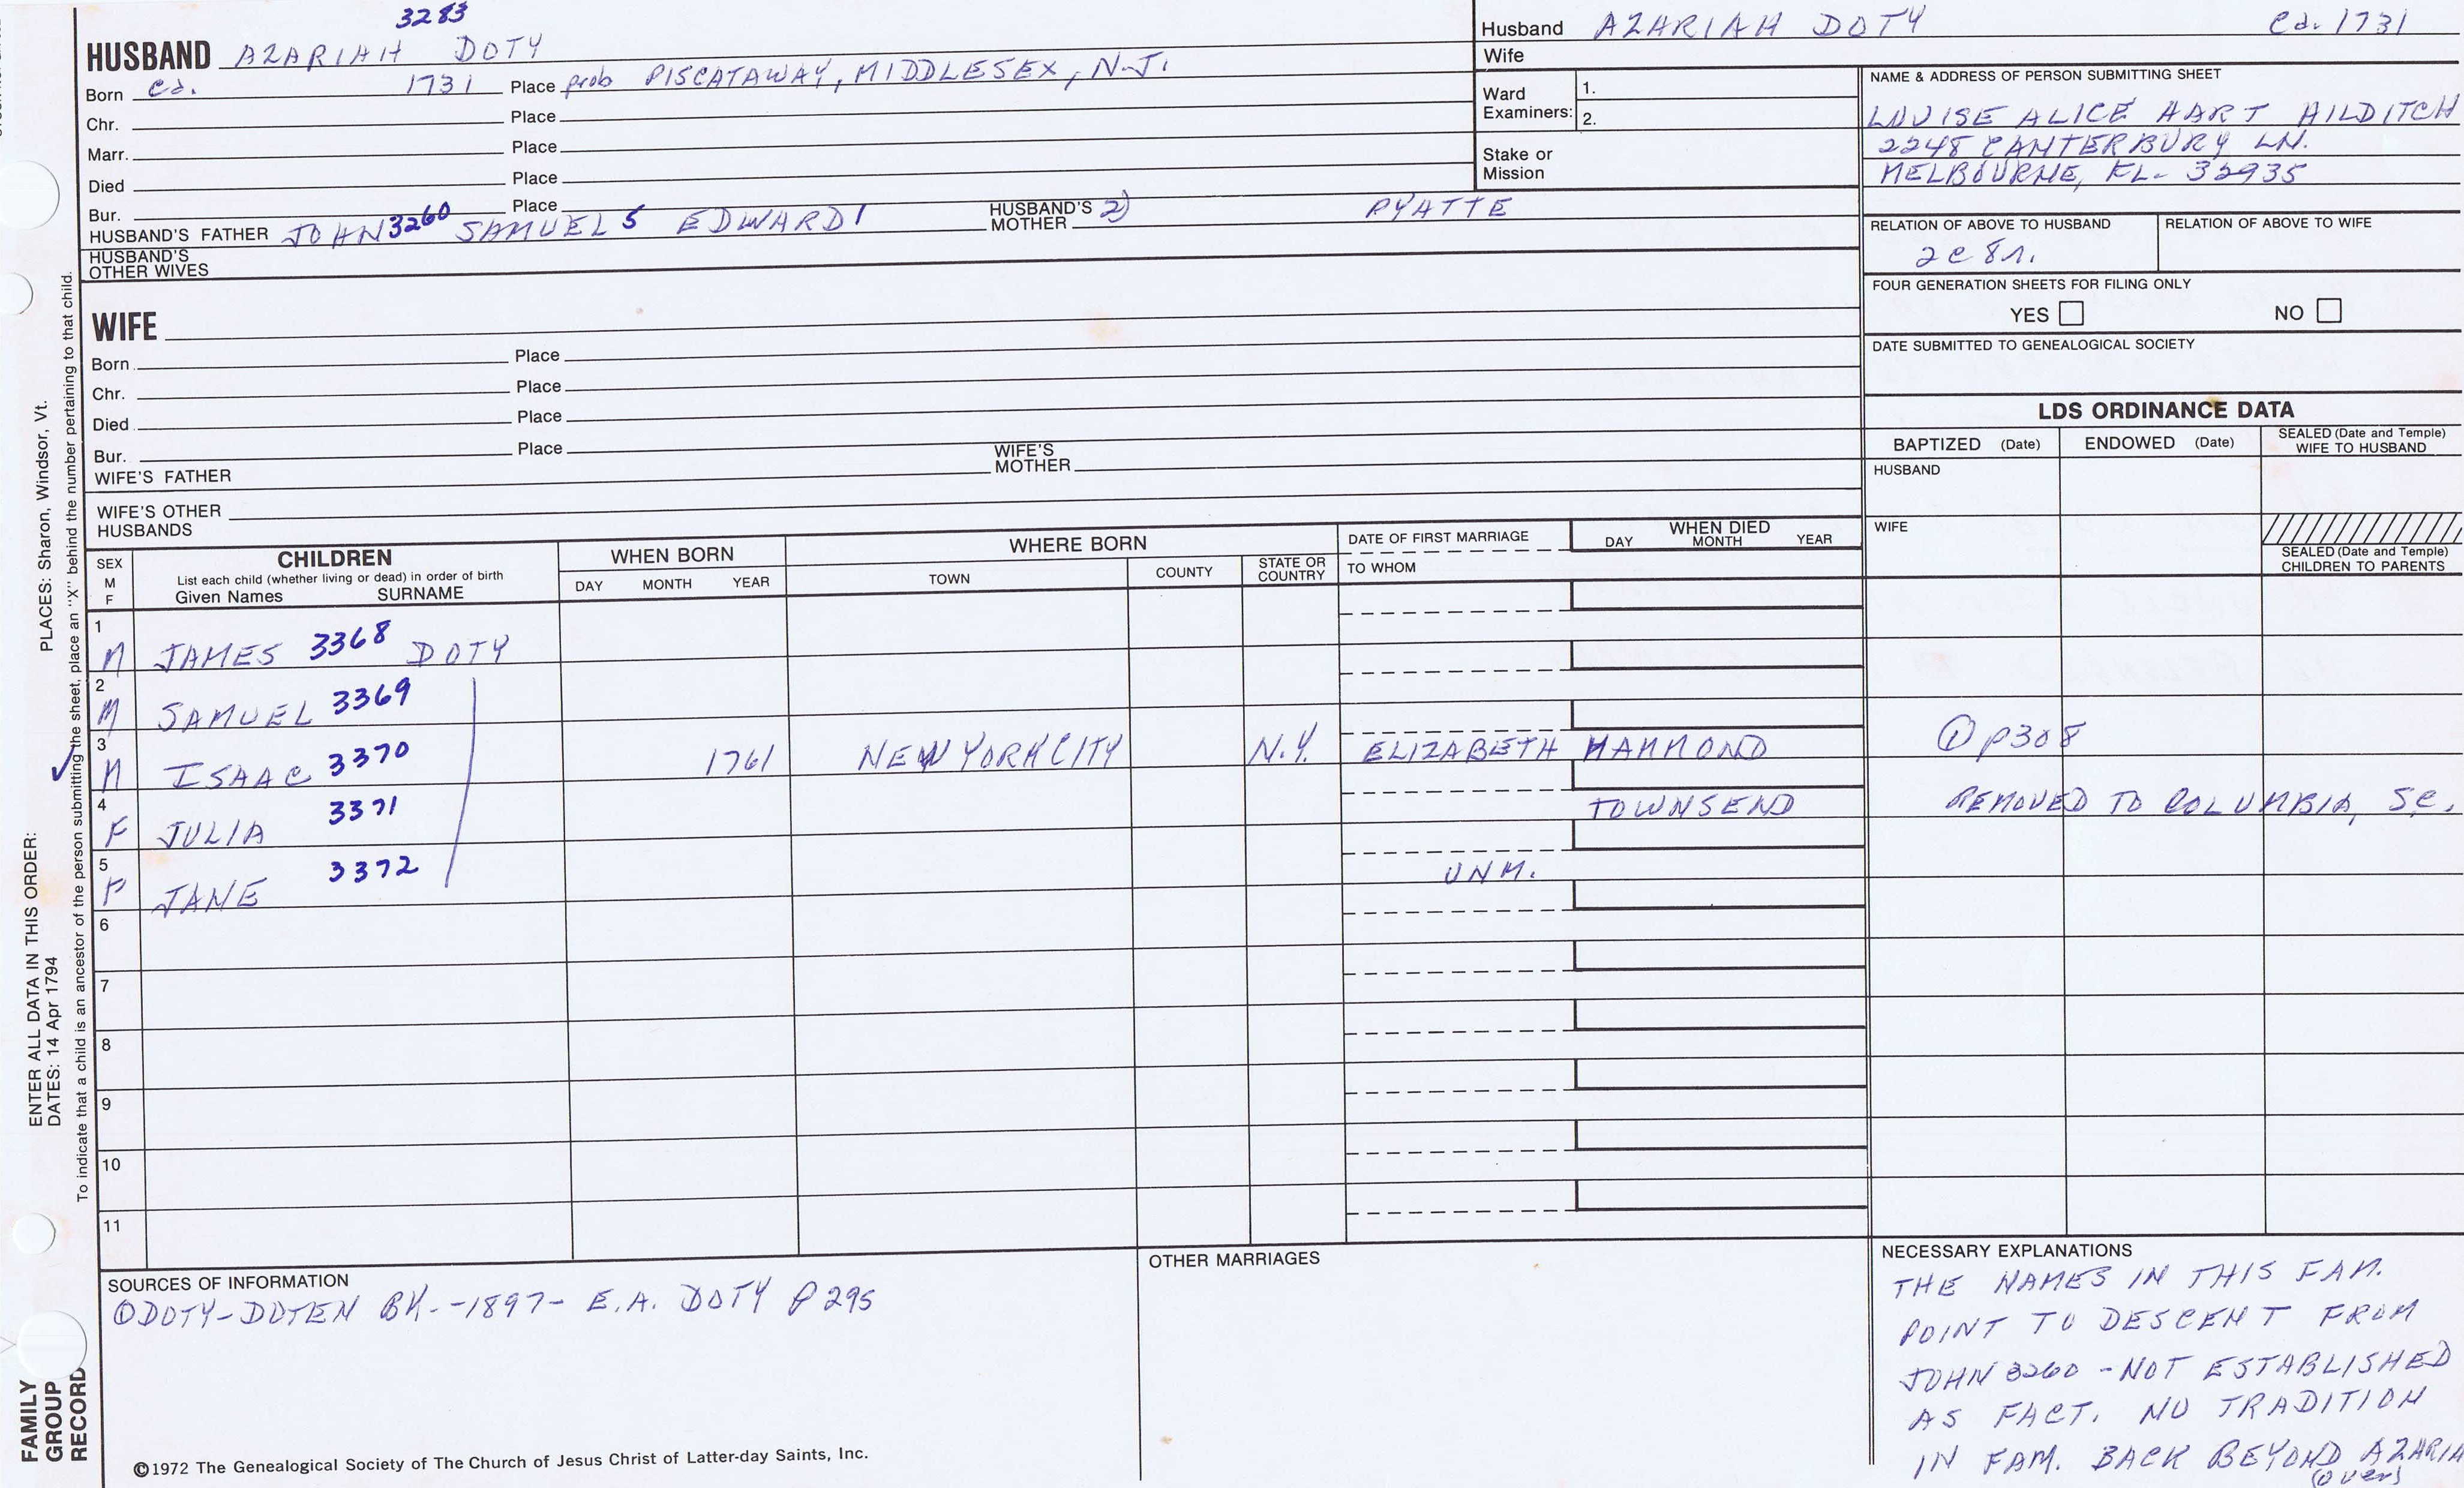 3283
HUSBAND AZARIAH DOTY
Born ca. 1731 Place prob PISCATAWAY, MIDDLESEX, N.J.
Chr. Place
Marr. Place
Died Place
Bur. Place
HUSBAND'S FATHER JOHN 3260 SAMUEL 5 EDWARD 1 HUSBAND'S MOTHER 2) PYATTE
HUSBAND'S OTHER WIVES
Husband AZARIAH DOTY ca. 1731
Wife
Ward Examiners: 1.
2.
Stake or Mission
NAME & ADDRESS OF PERSON SUBMITTING SHEET
LOUISE ALICE HART HILDITCH
2248 CANTERBURY LN.
MELBOURNE, FL. 32935
RELATION OF ABOVE TO HUSBAND RELATION OF ABOVE TO WIFE
2c 8r.
FOUR GENERATION SHEETS FOR FILING ONLY
YES NO
DATE SUBMITTED TO GENEALOGICAL SOCIETY
WIFE
Born Place
Chr. Place
Died Place
Bur. Place
WIFE'S FATHER WIFE'S MOTHER
WIFE'S OTHER HUSBANDS
LDS ORDINANCE DATA
BAPTIZED (Date) ENDOWED (Date) SEALED (Date and Temple) WIFE TO HUSBAND
HUSBAND
WIFE
SEALED (Date and Temple) CHILDREN TO PARENTS
SEX M F CHILDREN WHEN BORN WHERE BORN DATE OF FIRST MARRIAGE WHEN DIED
List each child (whether living or dead) in order of birth
Given Names SURNAME DAY MONTH YEAR TOWN COUNTY STATE OR COUNTRY TO WHOM DAY MONTH YEAR
1 M JAMES 3368 DOTY
2 M SAMUEL 3369
3 M ISAAC 3370 1761 NEW YORK CITY N.Y. ELIZABETH HAMMOND ① p308
4 F JULIA 3371 TOWNSEND REMOVED TO COLUMBIA, S.C.
5 F JANE 3372 UNM.
6
7
8
9
10
11
SOURCES OF INFORMATION
① DOTY-DOTEN BK.-1897- E.A. DOTY P 295
OTHER MARRIAGES
NECESSARY EXPLANATIONS
THE NAMES IN THIS FAM.
POINT TO DESCENT FROM
JOHN 3260 - NOT ESTABLISHED
AS FACT. NO TRADITION
IN FAM. BACK BEYOND AZARIA
(over)
©1972 The Genealogical Society of The Church of Jesus Christ of Latter-day Saints, Inc.
FAMILY GROUP RECORD
ENTER ALL DATA IN THIS ORDER:
DATES: 14 Apr 1794
PLACES: Sharon, Windsor, Vt.
To indicate that a child is an ancestor of the person submitting the sheet, place an "X" behind the number pertaining to that child.